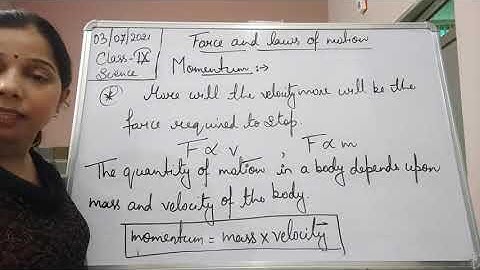 03/07/2021
Class-IX
Science
Force and laws of motion
Momentum :-
* More will the velocity more will be the
force required to stop.
F ∝ v , F ∝ m
The quantity of motion in a body depends upon
mass and velocity of the body.
momentum = mass × velocity